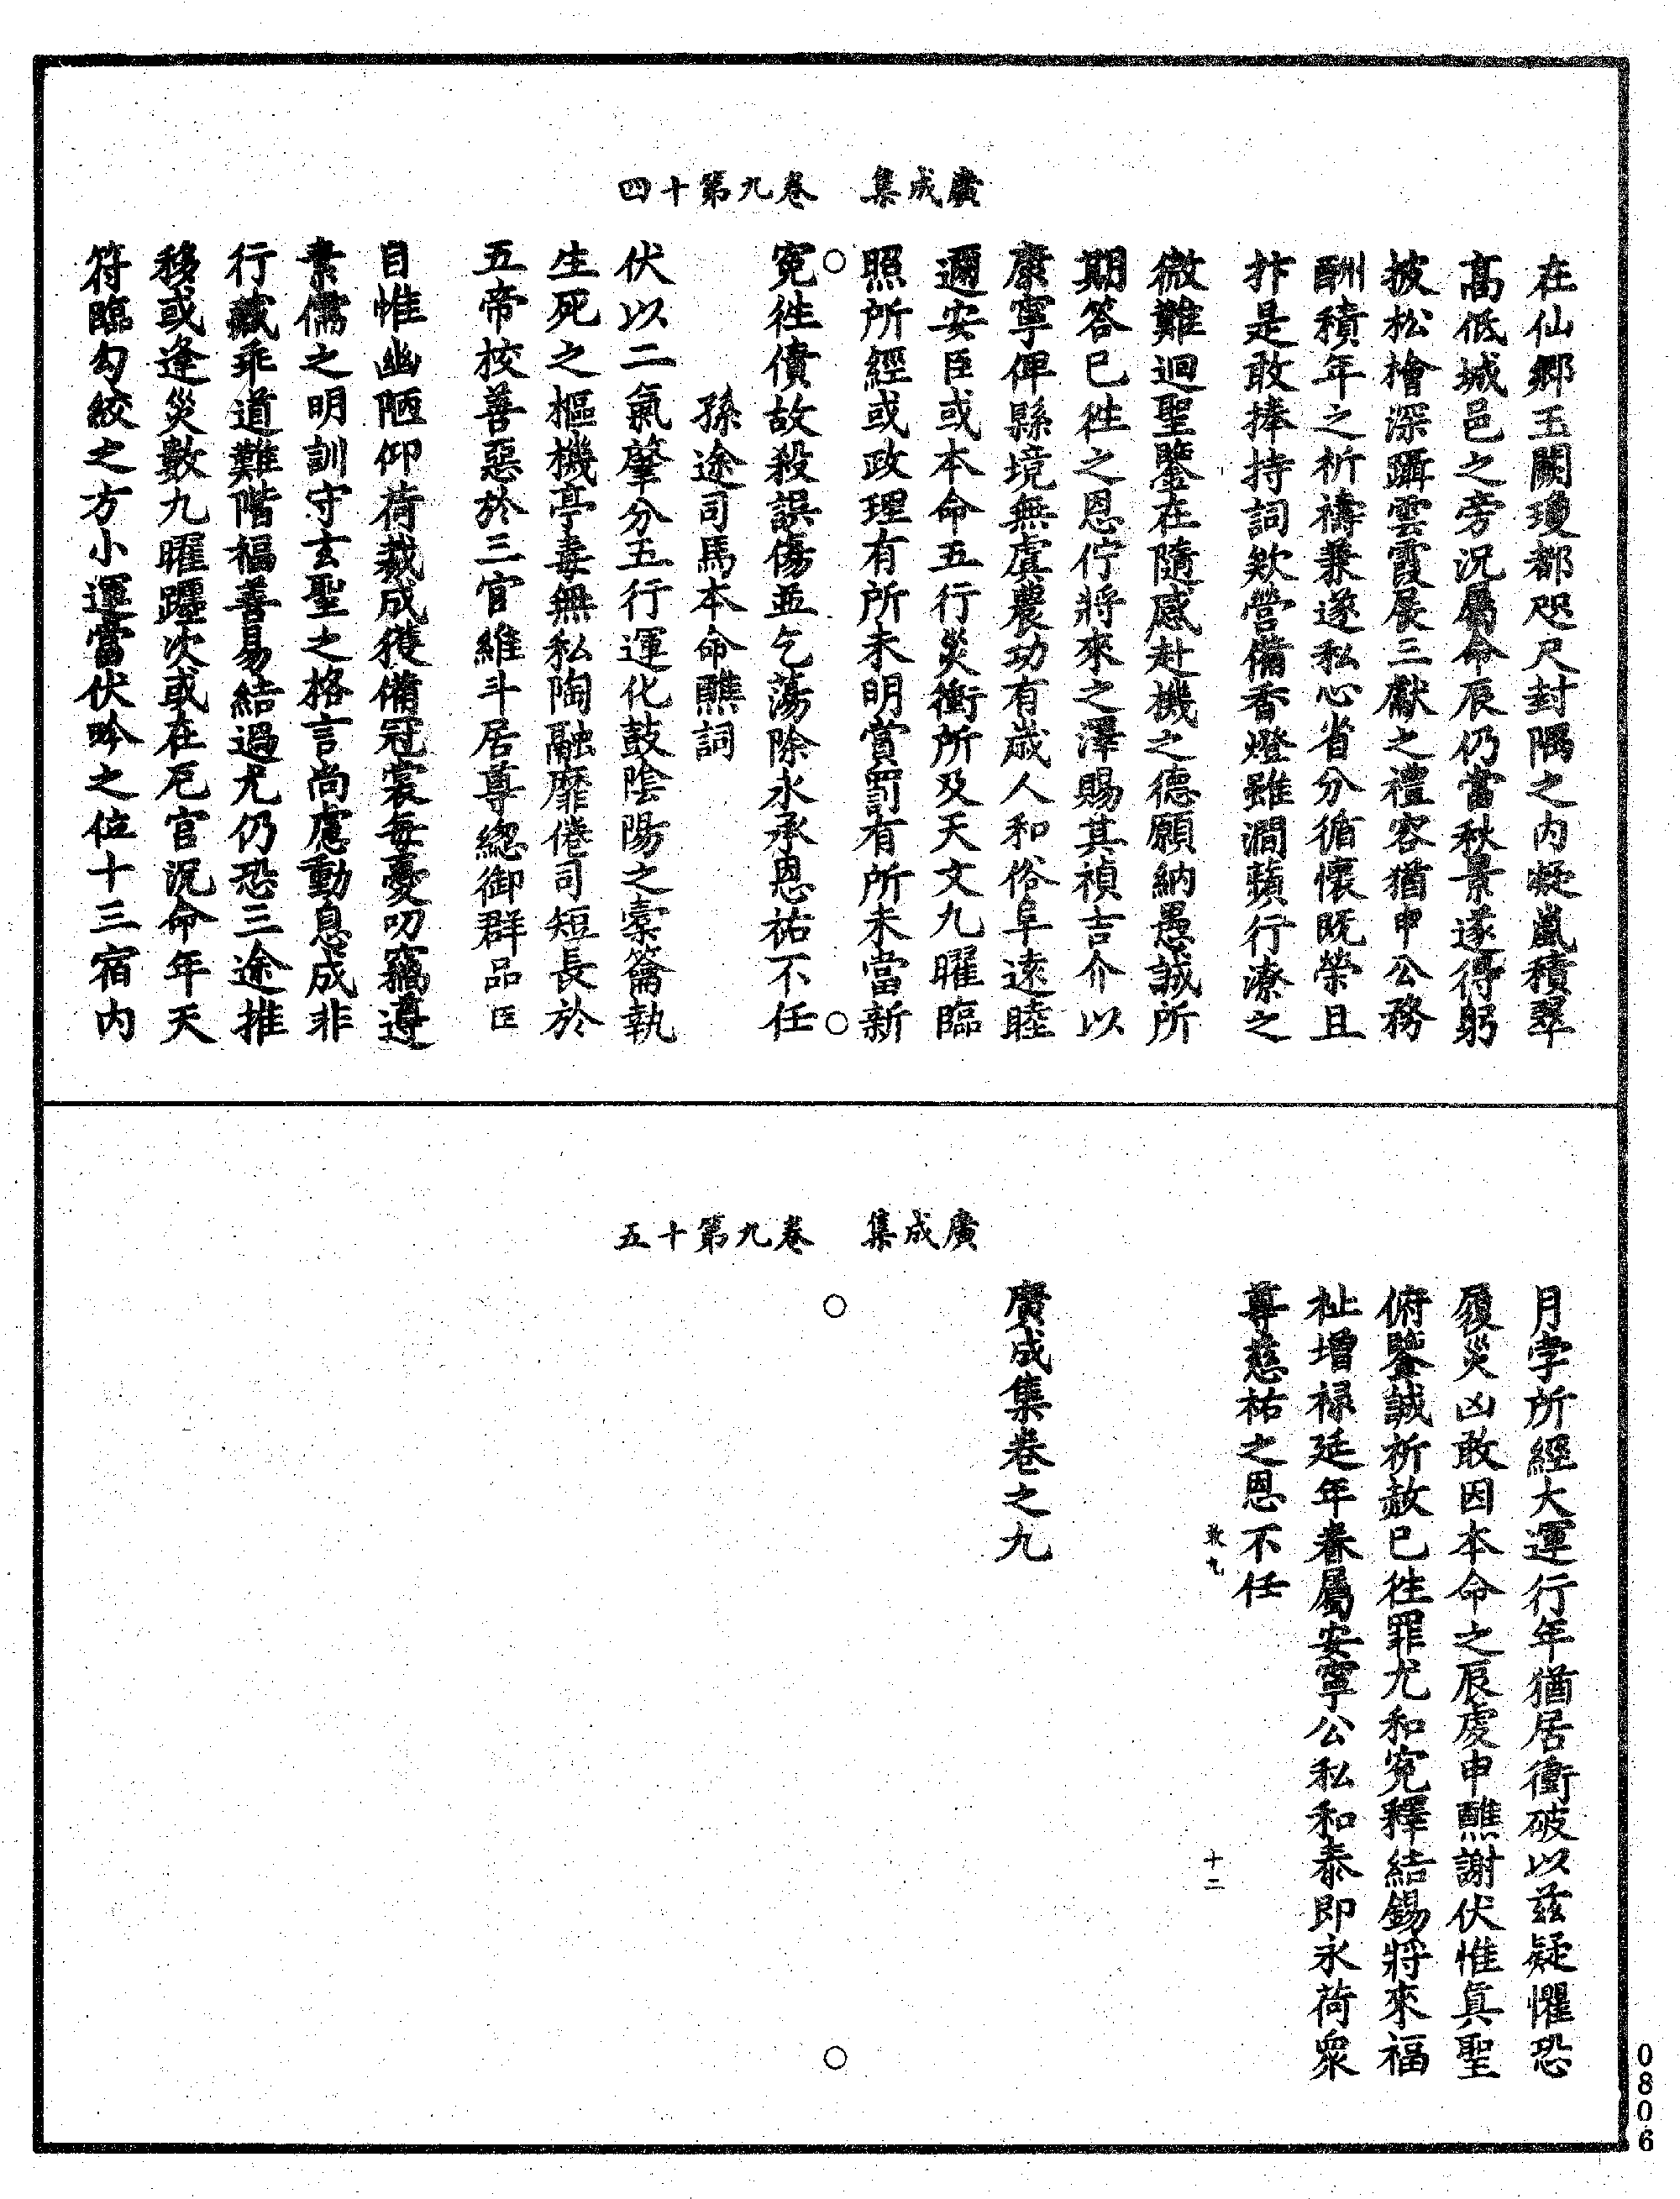 廣成集　卷九第十四
在仙鄉玉闕瓊都咫尺封隅之内凝嵐積翠
高低城邑之旁況屬命辰仍當秋景遂得躬
披松檜深躡雲霞展三獻之禮容猶申公務
酬積年之祈禱兼遂私心省分循懷既榮且
抃是敢捧持詞欵營備香燈雖澗蘋行潦之
微難迴聖鑒在隨感赴機之德願納愚誠所
期答已徃之恩佇將來之澤賜其禎吉介以
康寧俾縣境無虞農功有歲人和俗阜遠睦
邇安臣或本命五行災衝所及天文九曜臨
照所經或政理有所未明賞罰有所未當新
寃徃債故殺誤傷並乞蕩除永承恩祐不任
孫途司馬本命醮詞
伏以二氣肇分五行運化鼓陰陽之橐籥執
生死之樞機亭毒無私陶融靡倦司短長於
五帝校善惡於三官維斗居尊緫御群品臣
目惟幽陋仰荷裁成獲備冠裳每憂叨竊遵
素儒之明訓守玄聖之格言尚慮動息成非
行藏乖道難階福善易結過尤仍恐三途推
移或逢災數九曜躔次或在厄宫況命年天
符臨勾絞之方小運當伏吟之位十三宿内
廣成集　卷九第十五
月孛所經大運行年猶居衝破以兹疑懼恐
履災凶敢因本命之辰虔申醮謝伏惟真聖
俯鑒誠祈赦已徃罪尤和寃釋結錫將來福
祉增禄延年眷屬安寧公私和泰即永荷衆
尊慈祐之恩不任
敢九
十二
廣成集卷之九
0806